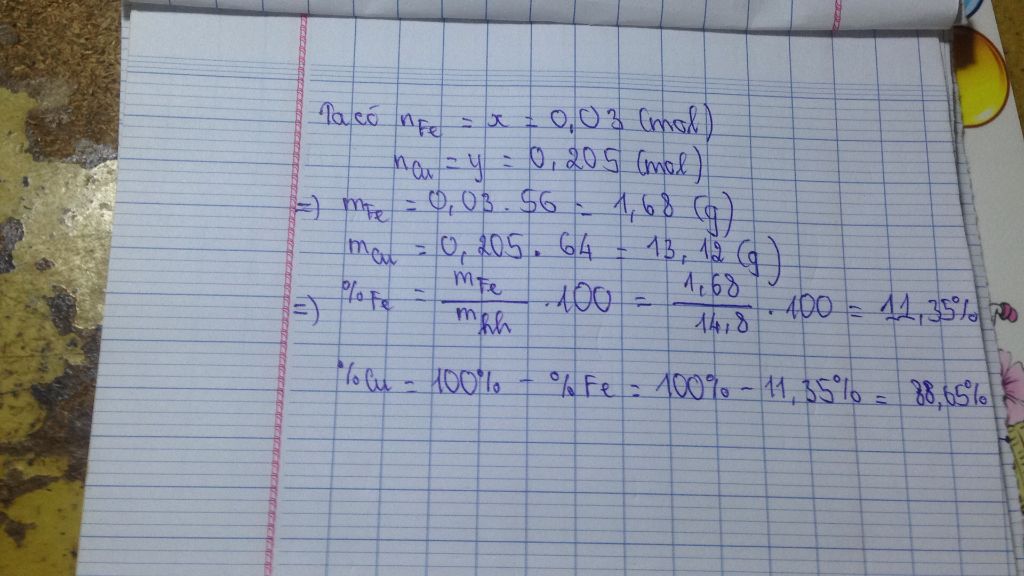 Ta có nFe = x = 0,03 (mol)
nCu = y = 0,205 (mol)
=> mFe = 0,03 . 56 = 1,68 (g)
mCu = 0,205 . 64 = 13,12 (g)
=> %Fe = mFe / mhh . 100 = 1,68 / 14,8 . 100 = 11,35%
%Cu = 100% - %Fe = 100% - 11,35% = 88,65%